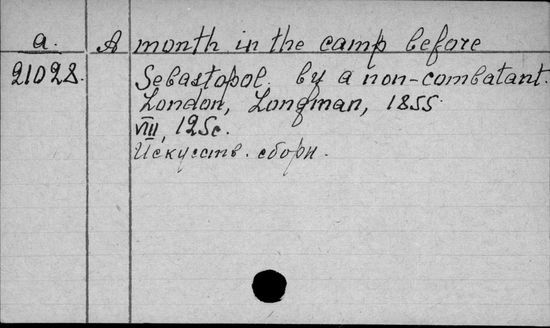 a. A month in the camp before
21028. Sebastopol. by a non-combatant.
London, Longman, 1855.
VIII, 125c.
Искусств. сборн.